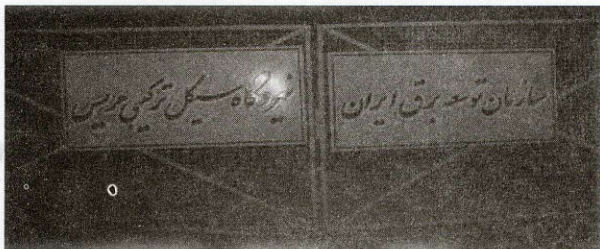 سازمان توسعه برق ایران
نیروگاه سیکل ترکیبی جریس